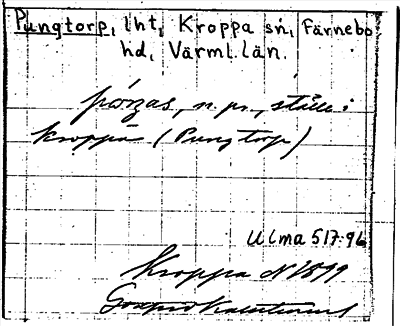 Pungtorp, lht, Kroppa sn, Färnebo
hd, Värml. län.
n. pr., ställe i
kroppa (Pungtorp)
Ulma 517:96
Kroppa 1899